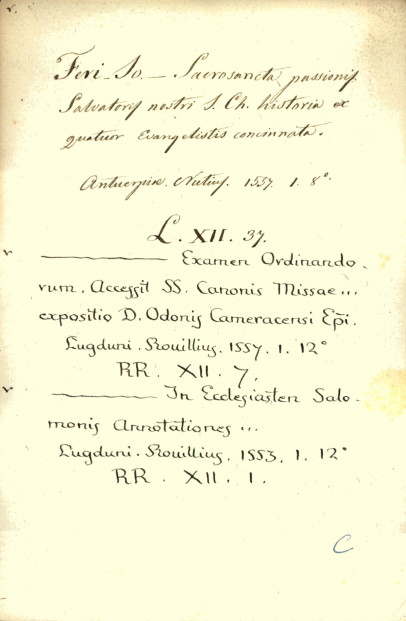 Feri - Jo. — Sacrosancta passionis
Salvatoris nostri J. Ch. historia ex
quatuor Evangelistis concinnata.
Antuerpiæ. Nutius. 1557. 1. 8°.
L. XII. 37.
——— Examen Ordinando-
rum. Accessit SS. Canonis Missae...
expositio D. Odonis Cameracensi Epi.
Lugduni. Rouillius, 1557. 1. 12°
RR. XII. 7.
——— In Ecclesiasten Salo-
monis Annotationes...
Lugduni. Rouillius. 1553. 1. 12°
RR. XII. 1.
C